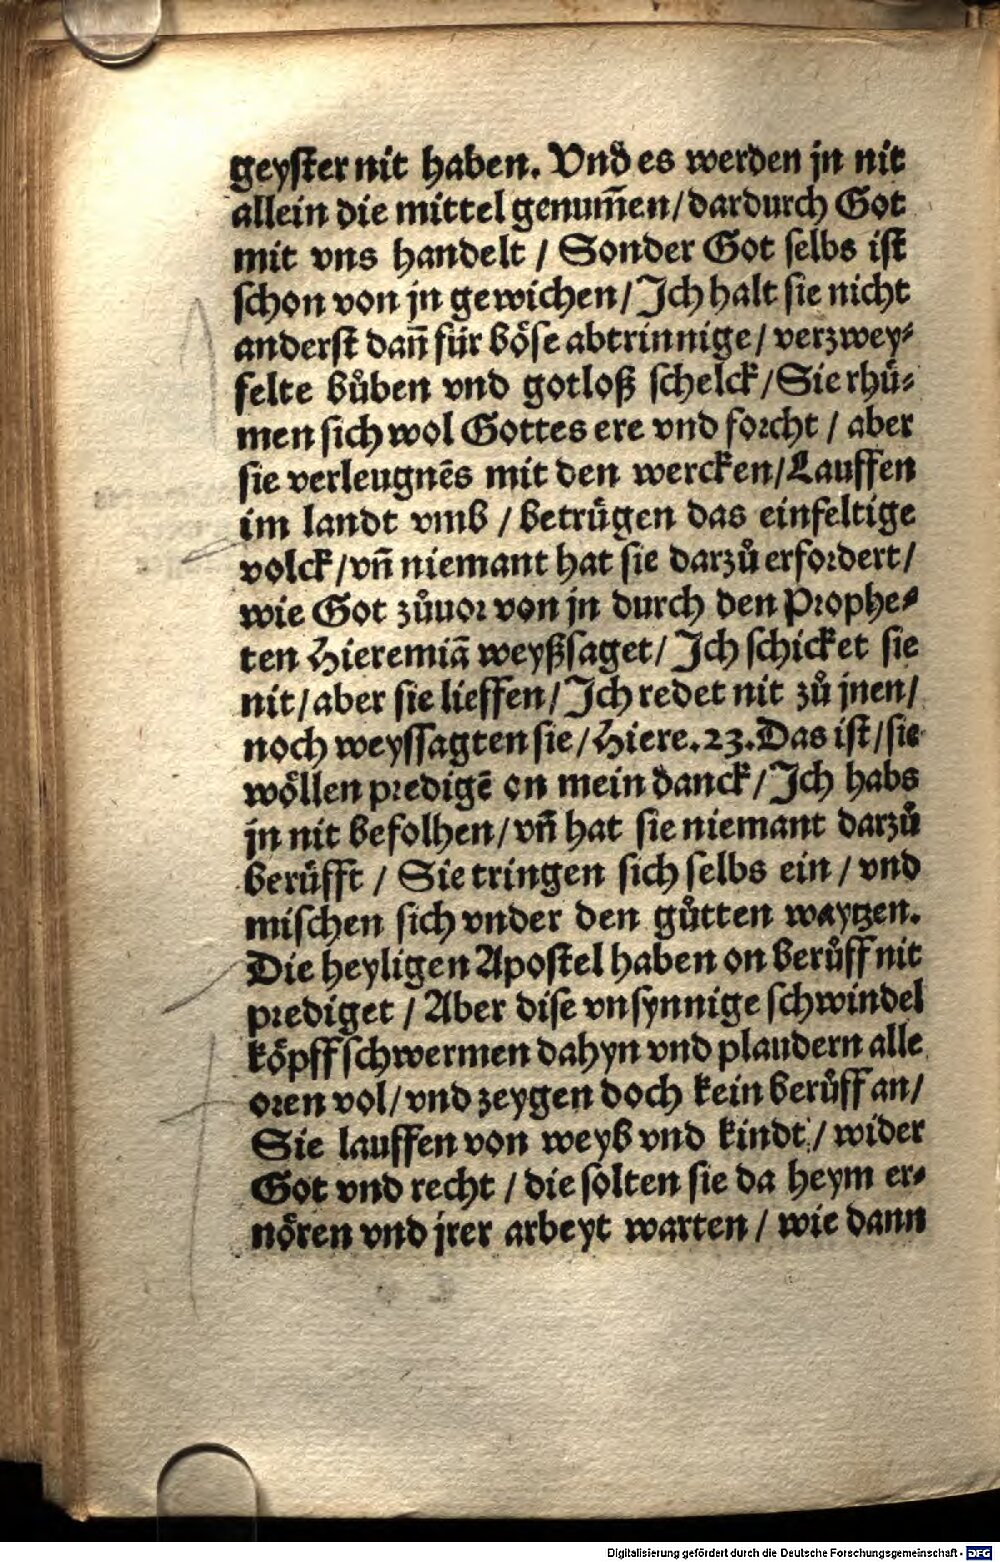 geyster nit haben. Vnd es werden jn nit
allein die mittel genum̃en / dardurch Got
mit vns handelt / Sonder Got selbs ist
schon von jn gewichen / Ich halt sie nicht
anderst dañ für böse abtrinnige / verzwey⸗
felte bůben vnd gotloß schelck / Sie rhuͤ⸗
men sich wol Gottes ere vnd forcht / aber
sie verleugnẽs mit den wercken / Lauffen
im landt vmb / betruͤgen das einfeltige
volck / vñ niemant hat sie darzů erfordert /
wie Got zůuor von jn durch den Prophe⸗
ten Hieremiã weyßsaget / Ich schicket sie
nit / aber sie lieffen / Ich redet nit zů jnen /
noch weyssagten sie / Hiere. 23. Das ist / sie
woͤllen predigẽ on mein danck / Ich habs
jn nit befolhen / vñ hat sie niemant darzů
beruͤfft / Sie tringen sich selbs ein / vnd
mischen sich vnder den gůtten waytzen.
Die heyligen Apostel haben on berůff nit
prediget / Aber dise vnsynnige schwindel
koͤpff schwermen dahyn vnd plaudern alle
oren vol / vnd zeygen doch kein berůff an /
Sie lauffen von weyb vnd kindt / wider
Got vnd recht / die solten sie da heym er⸗
noͤren vnd jrer arbeyt warten / wie dann
Digitalisierung gefördert durch die Deutsche Forschungsgemeinschaft - DFG